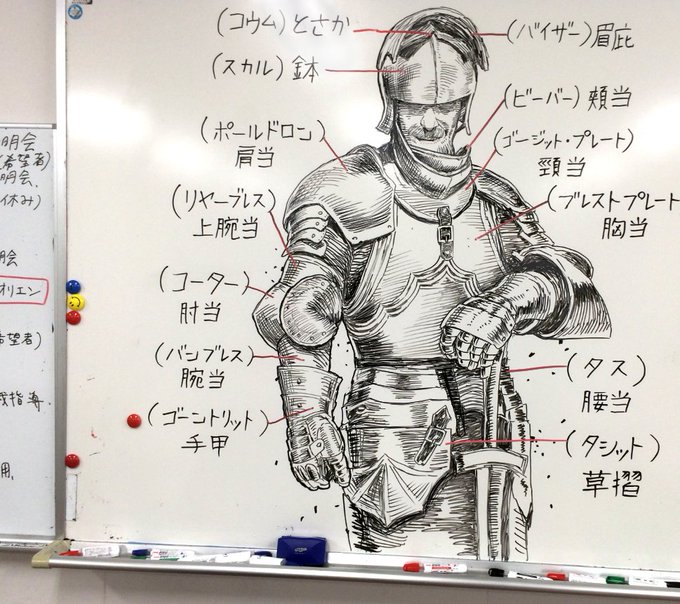 (コウム)とさか
(スカル)鉢
(ポールドロン)
肩当
(リヤーブレス)
上腕当
(コーター)
肘当
(バンブレス)
腕当
(ゴーントリット)
手甲
(バイザー)眉庇
(ビーバー)頬当
(ゴージット・プレート)
頸当
(ブレストプレート)
胸当
(タス)
腰当
(タシット)
草摺
明会
(希望者)
明会、
休み)
明会
オリエン
希望者)
指導、
用、